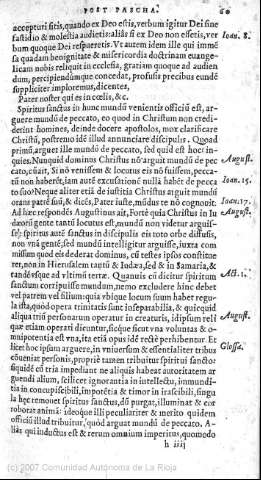 POST PASCHA. 60
accepturi sitis, quando ex Deo estis, verbum igitur Dei sine
fastidio & molestia audietis: aliàs si ex Deo non essetis, ver Ioan. 8.
bum quoque Dei respueretis. Vt autem idem ille qui immē
sa quadam benignitate & misericordia doctrinam euange-
licam nobis reliquit in ecclesia, gratiam quoque ad audien
dum, percipiendúmque concedat, profusis precibus eundē
suppliciter imploremus, dicentes,
Pater noster qui es in cœlis, &c.
Spiritus sanctus in hunc mundū venientis officiū est, ar-
guere mundū de peccato, eo quod in Christum non credi-
derint homines, deinde docere apostolos, mox clarificare
Christū, postremò idē illud annunciare discipulis. Quod
primū, arguet ille mundū de peccato, sed quid est hoc in-
quies, Nunquid dominus Christus nō arguit mundū de pec August.
cato, cùm ait, Si nō venissem & locutus eis nō fuissem, pecca
tū non haberēt, iam autē excusationē nullā habēt de pecca Ioan. 15.
to suo? Neque aliter etiā de iustitia Christus arguit mundū
orans patrē suū, & dicēs, Pater iuste, mūdus te nō cognouit. Ioan. 17.
Ad hæc respondēs Augustinus ait, Fortè quia Christus in Iu August.
dæorū gente tantū locutus est, mundū non videtur arguis-
se: spiritus autē sanctus in discipulis eis toto orbe diffusis,
non vnā gentē, sed mundū intelligitur arguisse, iuxta com
missum quod eis dederat dominus, cū testes ipsos constitue
ret, non in Hierusalem tantū & Iudæa, sed & in Samaria, &
tandē vsque ad vltimū terræ. Quanuis cū dicitur spiritum Act. 1.
sanctum corripuisse mundum, nemo excludere hinc debet
vel patrem vel filium: quia vbique locum suum habet regu-
la ista, quòd opera trinitatis sunt inseparabilia, & quicquid
aliqua triū personarum operatur in creaturis, idipsum reli August.
quæ etiam operari dicuntur, sicque sicut vna voluntas & o-
mnipotentia est, vna, ita etiā opus idē rectè perhibentur. Et
licet hoc ipsum arguere, in vniuersum & essentialiter tribus
cōueniat personis, propriè tamen tribuitur spiritui sancto: Glossa.
siquidē cū tria impediant ne aliquis habeat autoritatem ar
guendi alium, scilicet ignorantia in intellectu, immundi-
tia in concupiscibili, impotētia & timor in irascibili, singu
la hęc remouet spiritus sanctus, dū purgat, illuminat & cor
roborat animā: ideoque illi peculiariter & merito quidem
officiū illud tribuitur, quòd arguat mundū de peccato. A-
liàs qui inductus est & rerum omnium imperitus, quomodo
h iiij
(c) 2007 Comunidad Autónoma de La Rioja